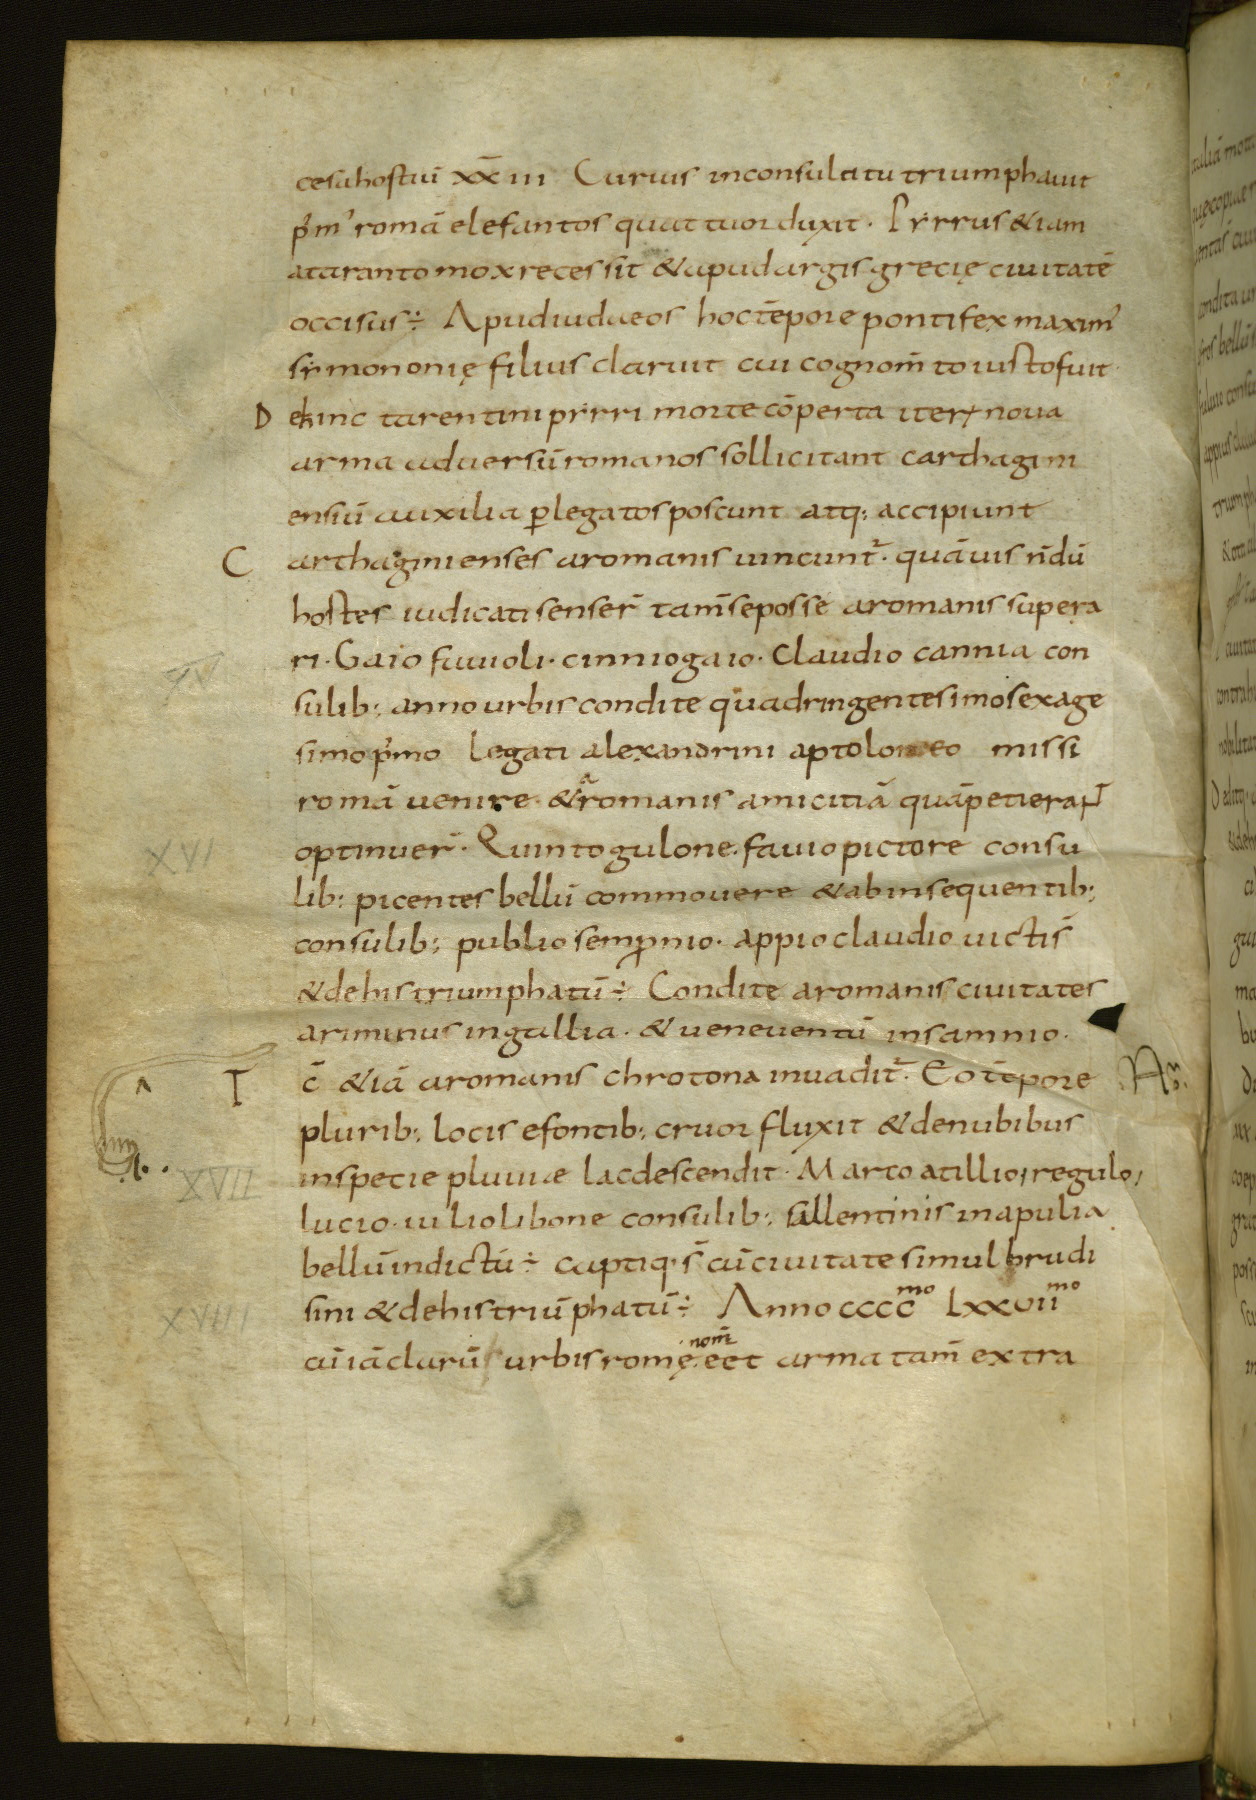 cesa hostiū x̅x̅iii Curius in consulatu triumphauit
p̄m' romā elefantos quattuor duxit. Pyrrus & iam
a taranto mox recessit & apud argis grecię ciuitatē
occisus ÷ Apud iudaeos hoc tēpore pontifex maxim'
symon onię filius claruit cui cognom̄to iusto fuit.
D ehinc tarentini pyrri morte cōperta iterꝝ noua
arma aduersū romanos sollicitant carthagini
ensiū auxilia ꝑ legatos poscunt atq; accipiunt
C arthaginienses a romanis uincunt᷑. quāuis n̄dū
hostes iudicati senser̄ tam̄ se posse a romanis supera
ri. Gaio fauioli. cinnio gaio. Claudio cannia con
sulib; anno urbis condite quadringentesimo sexage
simo p̄mo Legati alexandrini a ptolomeo missi
romā uenire. & a romanis amicitiā quā petierant
optinuer̄. Quinto gulone. fauio pictore consu
lib; picentes bellū commouere & ab insequentib;
consulib; publio sempronio. appio claudio uictis̄
& de his triumphatū ÷ Condite a romanis ciuitates
ariminus in gallia. & ueneuentū in samnio.
T c̄ & iā a romanis chrotona inuadit᷑. Eo tēpore
plurib; locis e fontib; cruor fluxit & de nubibus
in specie pluuiae lac descendit. Marco atillio, regulo,
lucio. iulio libone consulib; sallentinis in apulia
bellū indictū ÷ captiq. s̄ cū ciuitate simul brudi
sini & de his triūphatū ÷ Anno cccc mo Lxxuii mo
cū iā clarū urbis romę nom̄ eēt arma tam̄ extra
XV
XVI
XVII
XVIII